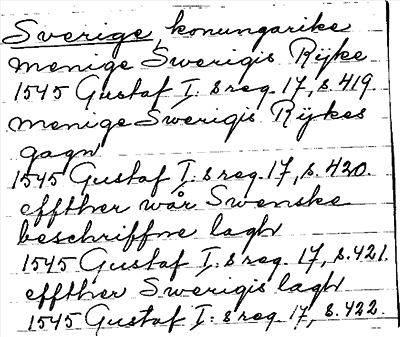 Sverige, konungarike
menige Swerigis Rijke
1545 Gustaf I:s reg. 17, s. 419.
menige Swerigis Rijkes
gagn
1545 Gustaf I:s reg. 17, s. 420.
effther wår Swenske
beschriffne lagh
1545 Gustaf I:s reg. 17, s. 421.
effther Swerigis lagh
1545 Gustaf I:s reg. 17, s. 422.